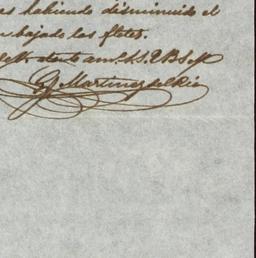 es habiendo disminuido el
bajado los fletes.
atento am. S.S.Q.B.S.M
G Martinez del Rio